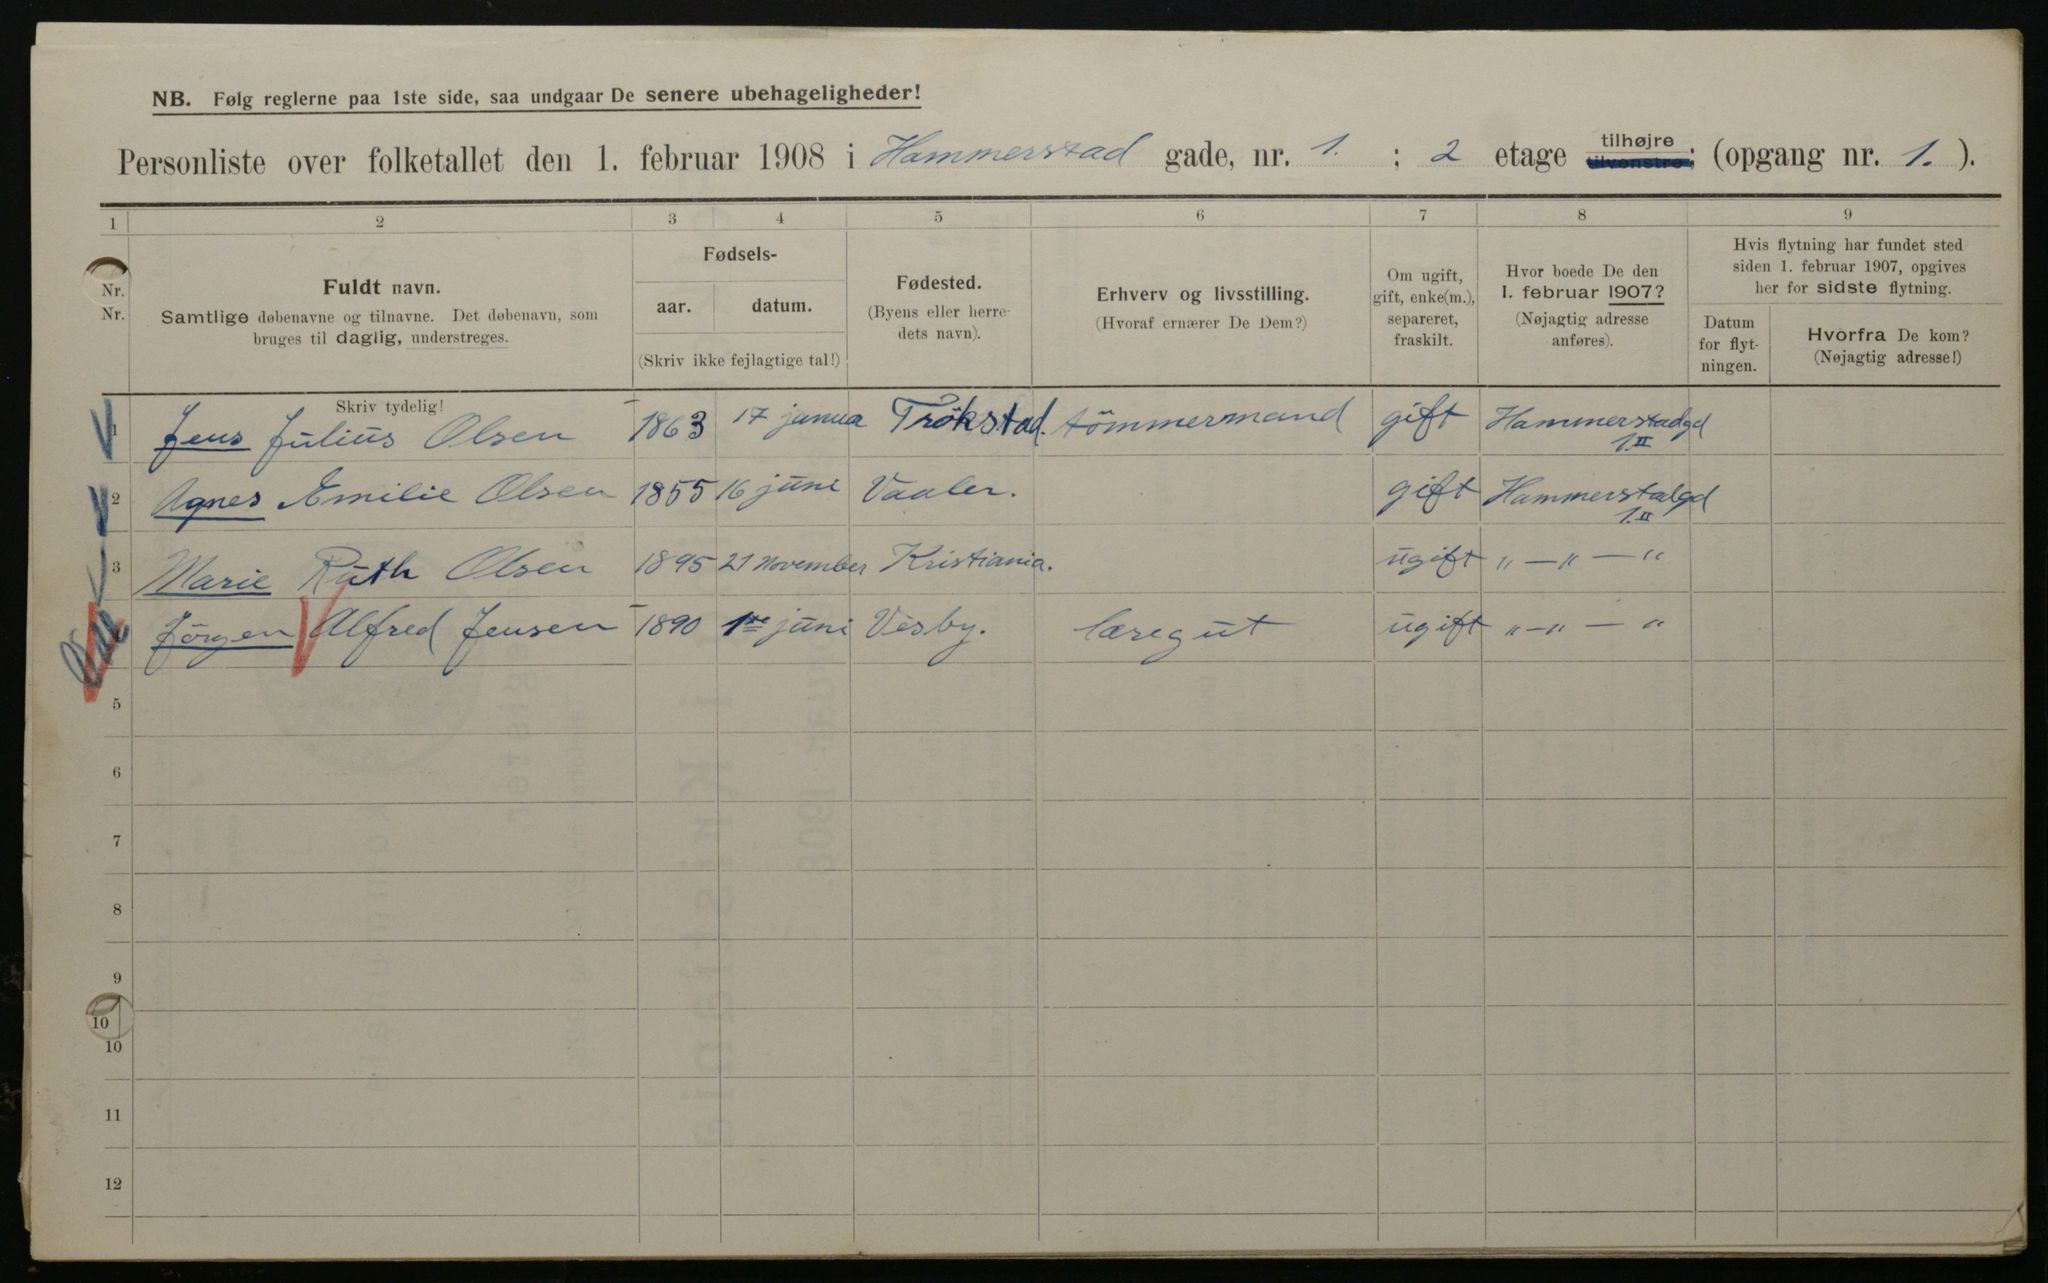 NB. Følg reglerne paa 1ste side, saa undgaar De senere ubehageligheder!
Personliste over folketallet den 1. februar 1908 i Hammerstad gade, nr. 1. ; 2 etage tilhøjre tilvenstre; (opgang nr. 1. ).
1 2 3 4 5 6 7 8 9
Nr. Nr. Fuldt navn. Samtlige døbenavne og tilnavne. Det døbenavn, som bruges til daglig, understreges.
Fødsels- aar. datum. (Skriv ikke fejlagtige tal!)
Fødested. (Byens eller herredets navn).
Erhverv og livsstilling. (Hvoraf ernærer De Dem?)
Om ugift, gift, enke(m.), separeret, fraskilt.
Hvor boede De den 1. februar 1907? (Nøjagtig adresse anføres).
Hvis flytning har fundet sted siden 1. februar 1907, opgives her for sidste flytning.
Datum for flytningen.
Hvorfra De kom? (Nøjagtig adresse!)
Skriv tydelig!
1 Jens Julius Olsen 1863 17 janua Trökstad. tömmermand gift Hammerstadgd 1.II
2 Agnes Emilie Olsen 1855 16 juni Vaaler. gift Hammerstalgd 1.II
3 Marie Ruth Olsen 1895 21 November Kristiania. ugift " — " — "
Jörgen Alfred Jensen 1890 1ste juni Vesby. læregut ugift " — " — "
5
6
7
8
9
10
10
11
12